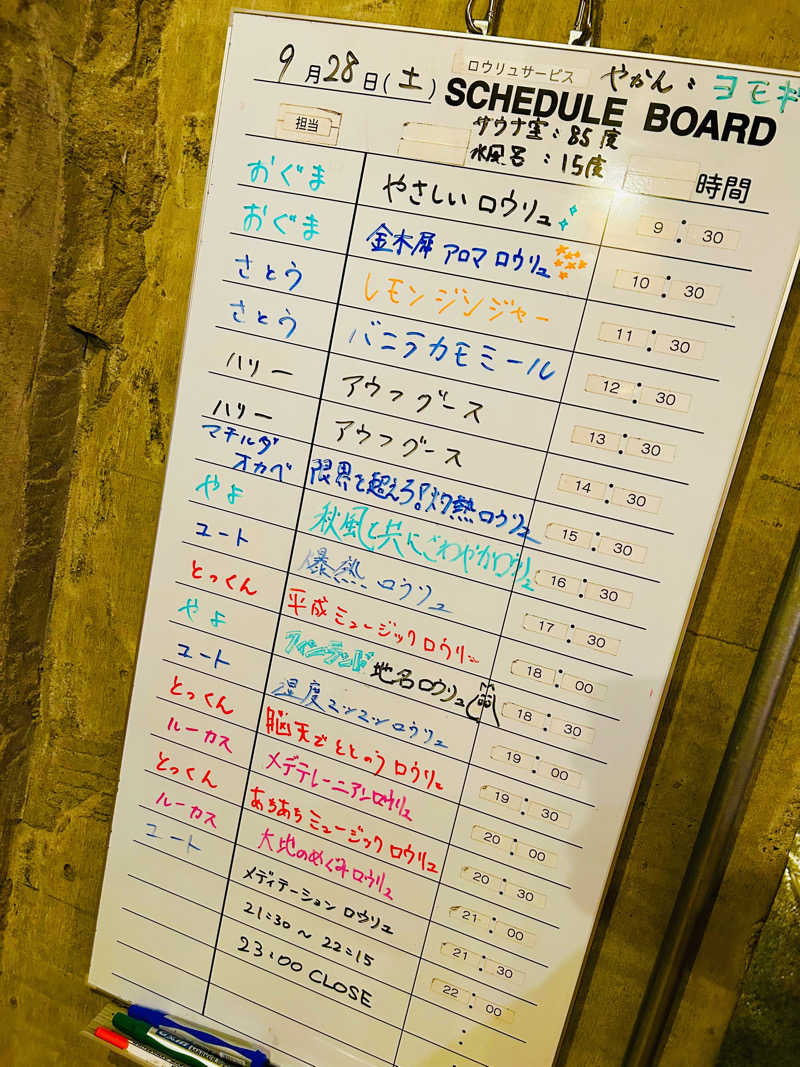 ロウリュサービス やかん:ヨモギ
9月28日(土) SCHEDULE BOARD
サウナ室:85度
担当 水風呂:15度 時間
おぐま やさしいロウリュ 9:30
おぐま 金木犀アロマロウリュ 10:30
さとう レモンジンジャー 11:30
さとう バニラカモミール 12:30
ハリー アウフグース 13:30
ハリー アウフグース 14:30
マチルダ
オカベ 限界を超えろ!灼熱ロウリュ 15:30
やよ 秋風と共にさわやかロウリュ 16:30
ユート 爆熱ロウリュ 17:30
とっくん 平成ミュージックロウリュ 18:00
やよ フィンランド地名ロウリュ 18:30
ユート 湿度マシマシロウリュ 19:00
とっくん 脳天でととのうロウリュ 19:30
ルーカス メデテレーニアンロウリュ 20:00
とっくん あちあちミュージックロウリュ 20:30
ルーカス 大地のめぐみロウリュ 21:00
ユート メディテーションロウリュ 21:30
21:30〜22:15 22:00
23:00 CLOSE